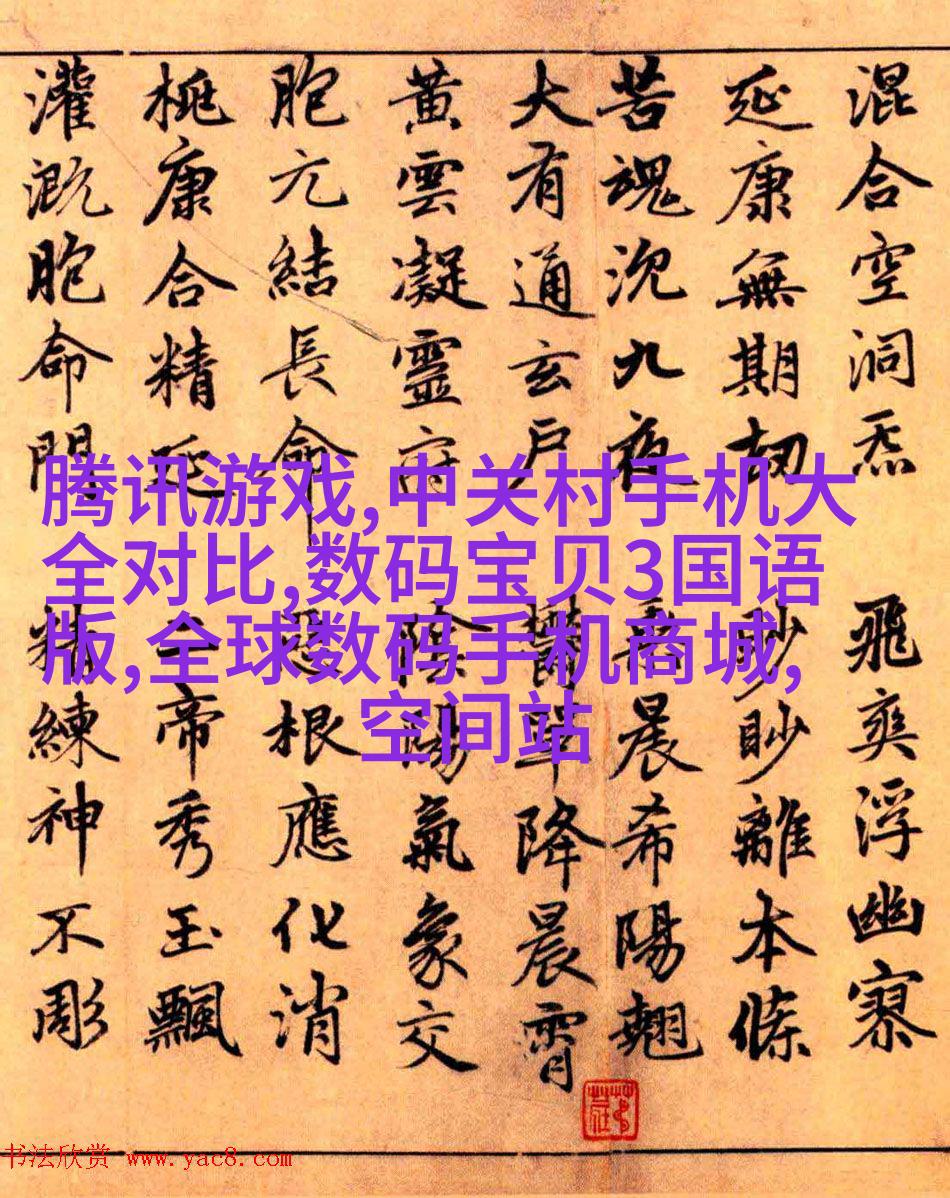 混合空洞炁 飛爽浮幽寥
延康無期劫 眇眇離本條
苦魂沉九夜 晨希陽翹
大有通玄戶 鬱單降晨霄
黃雲凝靈府 陰陽氣象交
胞元結長命 根應化消
桃康合精延 帝秀玉飄
灌溉胞命門 精練神不彫
腾讯游戏,中关村手机大
全对比,数码宝贝3国语
版,全球数码手机商城,
空间站
书法欣赏 www.yac8.com